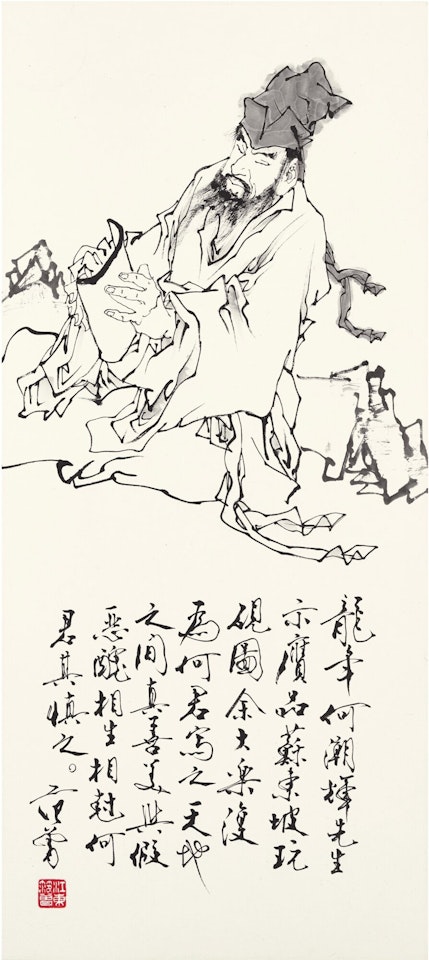 龍年何潮輝先生
示贋品蘇東坡玩
硯圖余大樂復
為何君寫之天地
之間真善美與假
惡醜相生相尅何
君其慎之。范曾
江東范曾